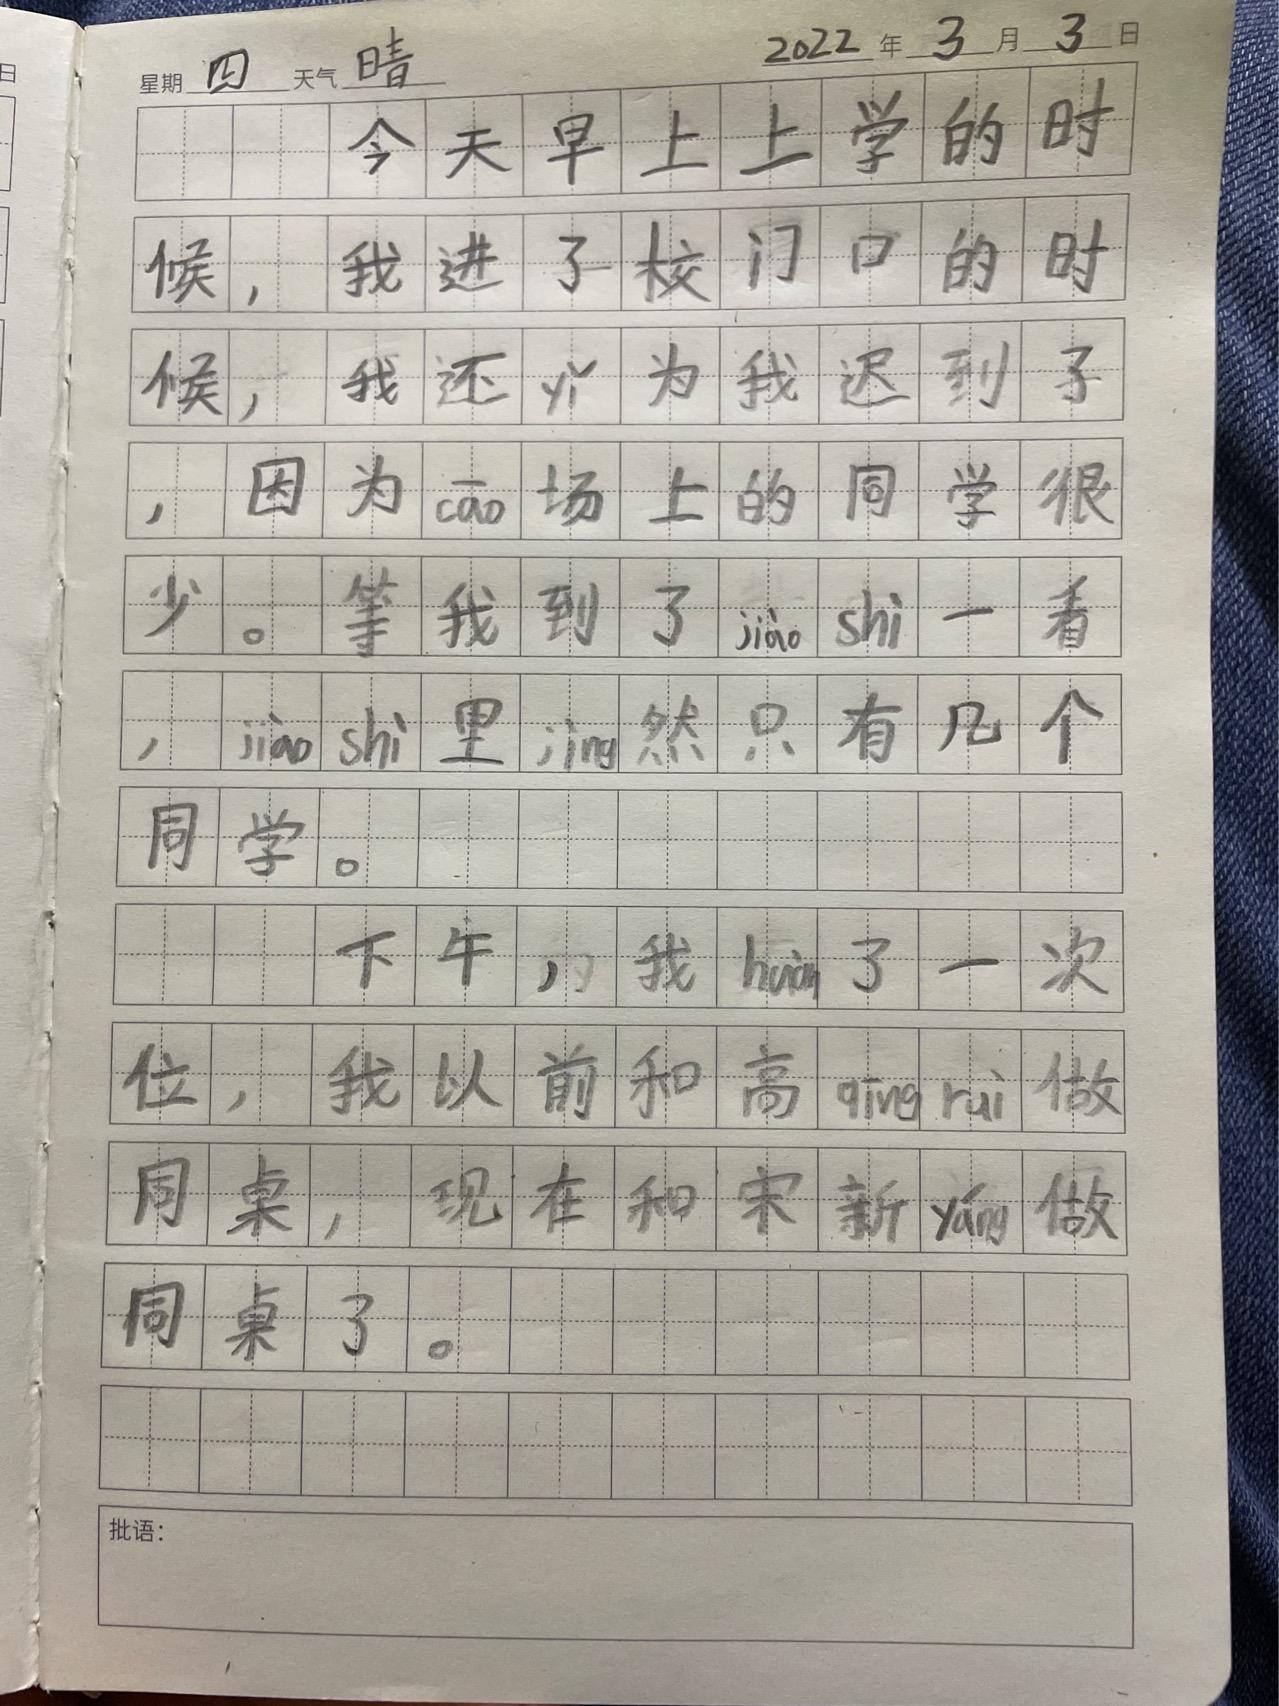 星期 四 天气 晴 2022 年 3 月 3 日
今天早上上学的时
候，我进了校门口的时
候，我还yǐ为我迟到了
，因为cāo场上的同学很
少。等我到了jiào shì一看
，jiào shì里jìng然只有几个
同学。
下午，我huàn了一次
位，我以前和高qīng ruì做
同桌，现在和宋新yáng做
同桌了。
批语：